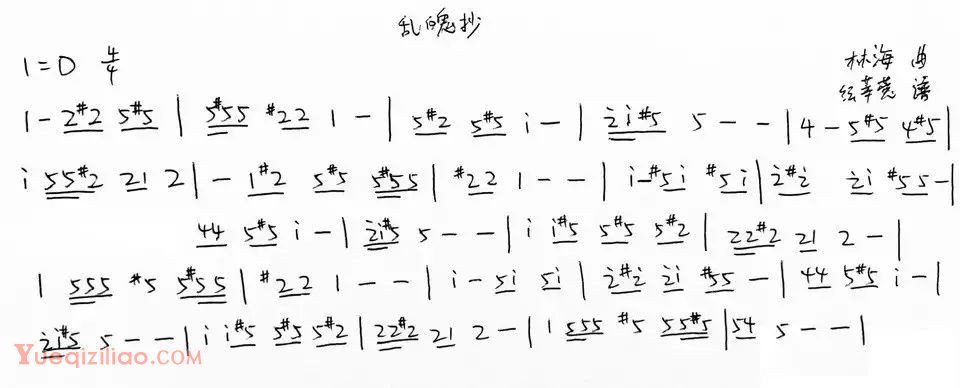 乱魄抄
1=D 4/4
林海 曲
谱
1 - 2 #2 5 #5 | 5 #5 5 #2 2 1 - | 5 #2 5 #5 i - | 2̇ i #5 5 - - | 4 - 5 #5 4 #5 |
i 5 5 #2 2 1 2 | - 1 #2 5 #5 5 #5 5 | #2 2 1 - - | i - #5 i #5 i | 2̇ #2̇ 2̇ i #5 5 - |
4 4 5 #5 i - | 2̇ i #5 5 - - | i i #5 5 #5 5 #2 | 2 2 #2 2 1 2 - |
1 5 5 5 #5 5 #5 5 | #2 2 1 - - | i - 5 i 5 i | 2̇ #2̇ 2̇ i #5 5 - | 4 4 5 #5 i - |
2̇ i #5 5 - - | i i #5 5 #5 5 #2 | 2 2 #2 2 1 2 - | 1 5 5 5 #5 5 5 #5 | 5 4 5 - - |
Yueqiziliao.com